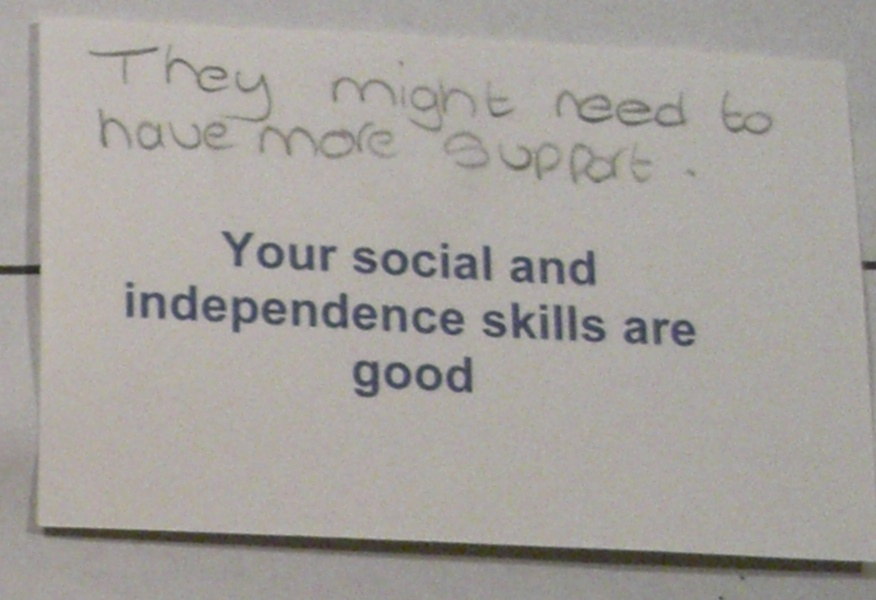 They might need to
have more support.
Your social and
independence skills are
good